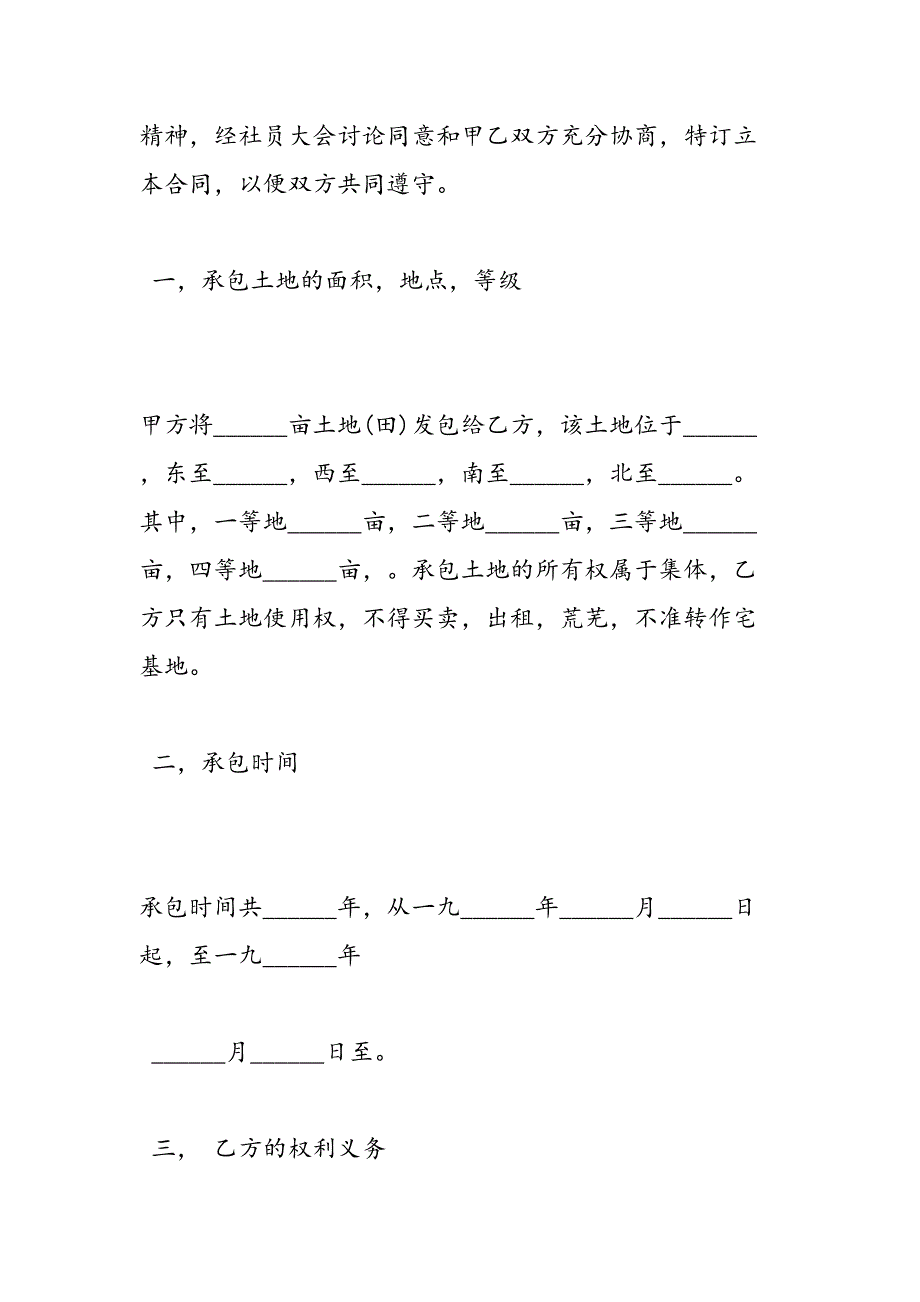 精神，经社员大会讨论同意和甲乙双方充分协商，特订立
本合同，以便双方共同遵守。
一，承包土地的面积，地点，等级
甲方将______亩土地(田)发包给乙方，该土地位于______
，东至______，西至______，南至______，北至______。
其中，一等地______亩，二等地______亩，三等地______
亩，四等地______亩，。承包土地的所有权属于集体，乙
方只有土地使用权，不得买卖，出租，荒芜，不准转作宅
基地。
二，承包时间
承包时间共______年，从一九______年______月______日
起，至一九______年
______月______日至。
三， 乙方的权利义务